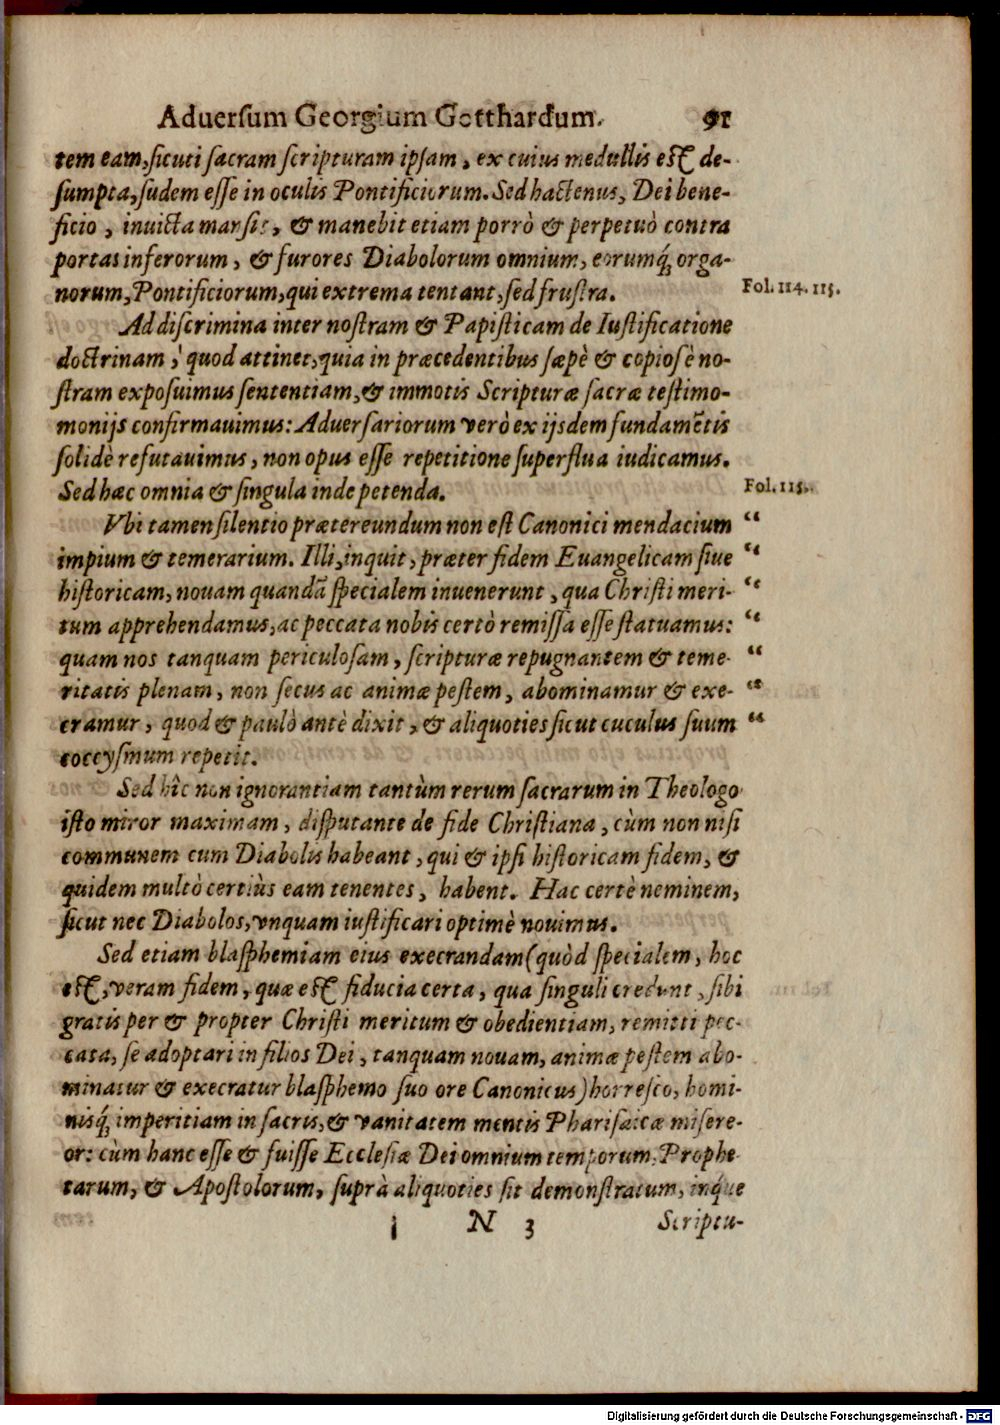 Aduerſum Georgium Gotthardum. 91
tem eam, ſicuti ſacram ſcripturam ipſam, ex cuius medullis eſt de-
ſumpta, ſudem eſſe in oculis Pontificiorum. Sed hactenus, Dei bene-
ficio, inuicta manſit, & manebit etiam porrò & perpetuò contra
portas inferorum, & furores Diabolorum omnium, eorumq́; orga-
norum, Pontificiorum, qui extrema tentant, ſed fruſtra. Fol. 114. 115.
Ad diſcrimina inter noſtram & Papiſticam de Iuſtificatione
doctrinam, quod attinet, quia in præcedentibus ſæpè & copioſè no-
ſtram expoſuimus ſententiam, & immotis Scripturæ ſacræ teſtimo-
monijs confirmauimus: Aduerſariorum verò ex ijsdem fundamētis
ſolidè refutauimus, non opus eſſe repetitione ſuperflua iudicamus.
Sed hæc omnia & ſingula inde petenda. Fol. 115.
Vbi tamen ſilentio prætereundum non eſt Canonici mendacium “
impium & temerarium. Illi, inquit, præter fidem Euangelicam ſiue “
hiſtoricam, nouam quandā ſpecialem inuenerunt, qua Chriſti meri- “
tum apprehendamus, ac peccata nobis certò remiſſa eſſe ſtatuamus: “
quam nos tanquam periculoſam, ſcripturæ repugnantem & teme- “
ritatis plenam, non ſecus ac animæ peſtem, abominamur & exe- “
cramur, quod & paulò antè dixit, & aliquoties ſicut cuculus ſuum “
coccyſmum repetit.
Sed hîc non ignorantiam tantùm rerum ſacrarum in Theologo
iſto miror maximam, diſputante de fide Chriſtiana, cùm non niſi
communem cum Diabolis habeant, qui & ipſi hiſtoricam fidem, &
quidem multò certiùs eam tenentes, habent. Hac certè neminem,
ſicut nec Diabolos, vnquam iuſtificari optimè nouimus.
Sed etiam blaſphemiam eius execrandam (quòd ſpecialem, hoc
eſt, veram fidem, quæ eſt fiducia certa, qua ſinguli credunt, ſibi
gratis per & propter Chriſti meritum & obedientiam, remitti pec-
cata, ſe adoptari in filios Dei, tanquam nouam, animæ peſtem abo-
minatur & execratur blaſphemo ſuo ore Canonicus) horreſco, homi-
nisq́; imperitiam in ſacris, & vanitatem mentis Phariſaicæ miſere-
or: cùm hanc eſſe & fuiſſe Eccleſiæ Dei omnium temporum, Prophe-
tarum, & Apoſtolorum, ſuprà aliquoties ſit demonſtratum, inq́ue
N 3 Scriptu-
Digitalisierung gefördert durch die Deutsche Forschungsgemeinschaft - DFG